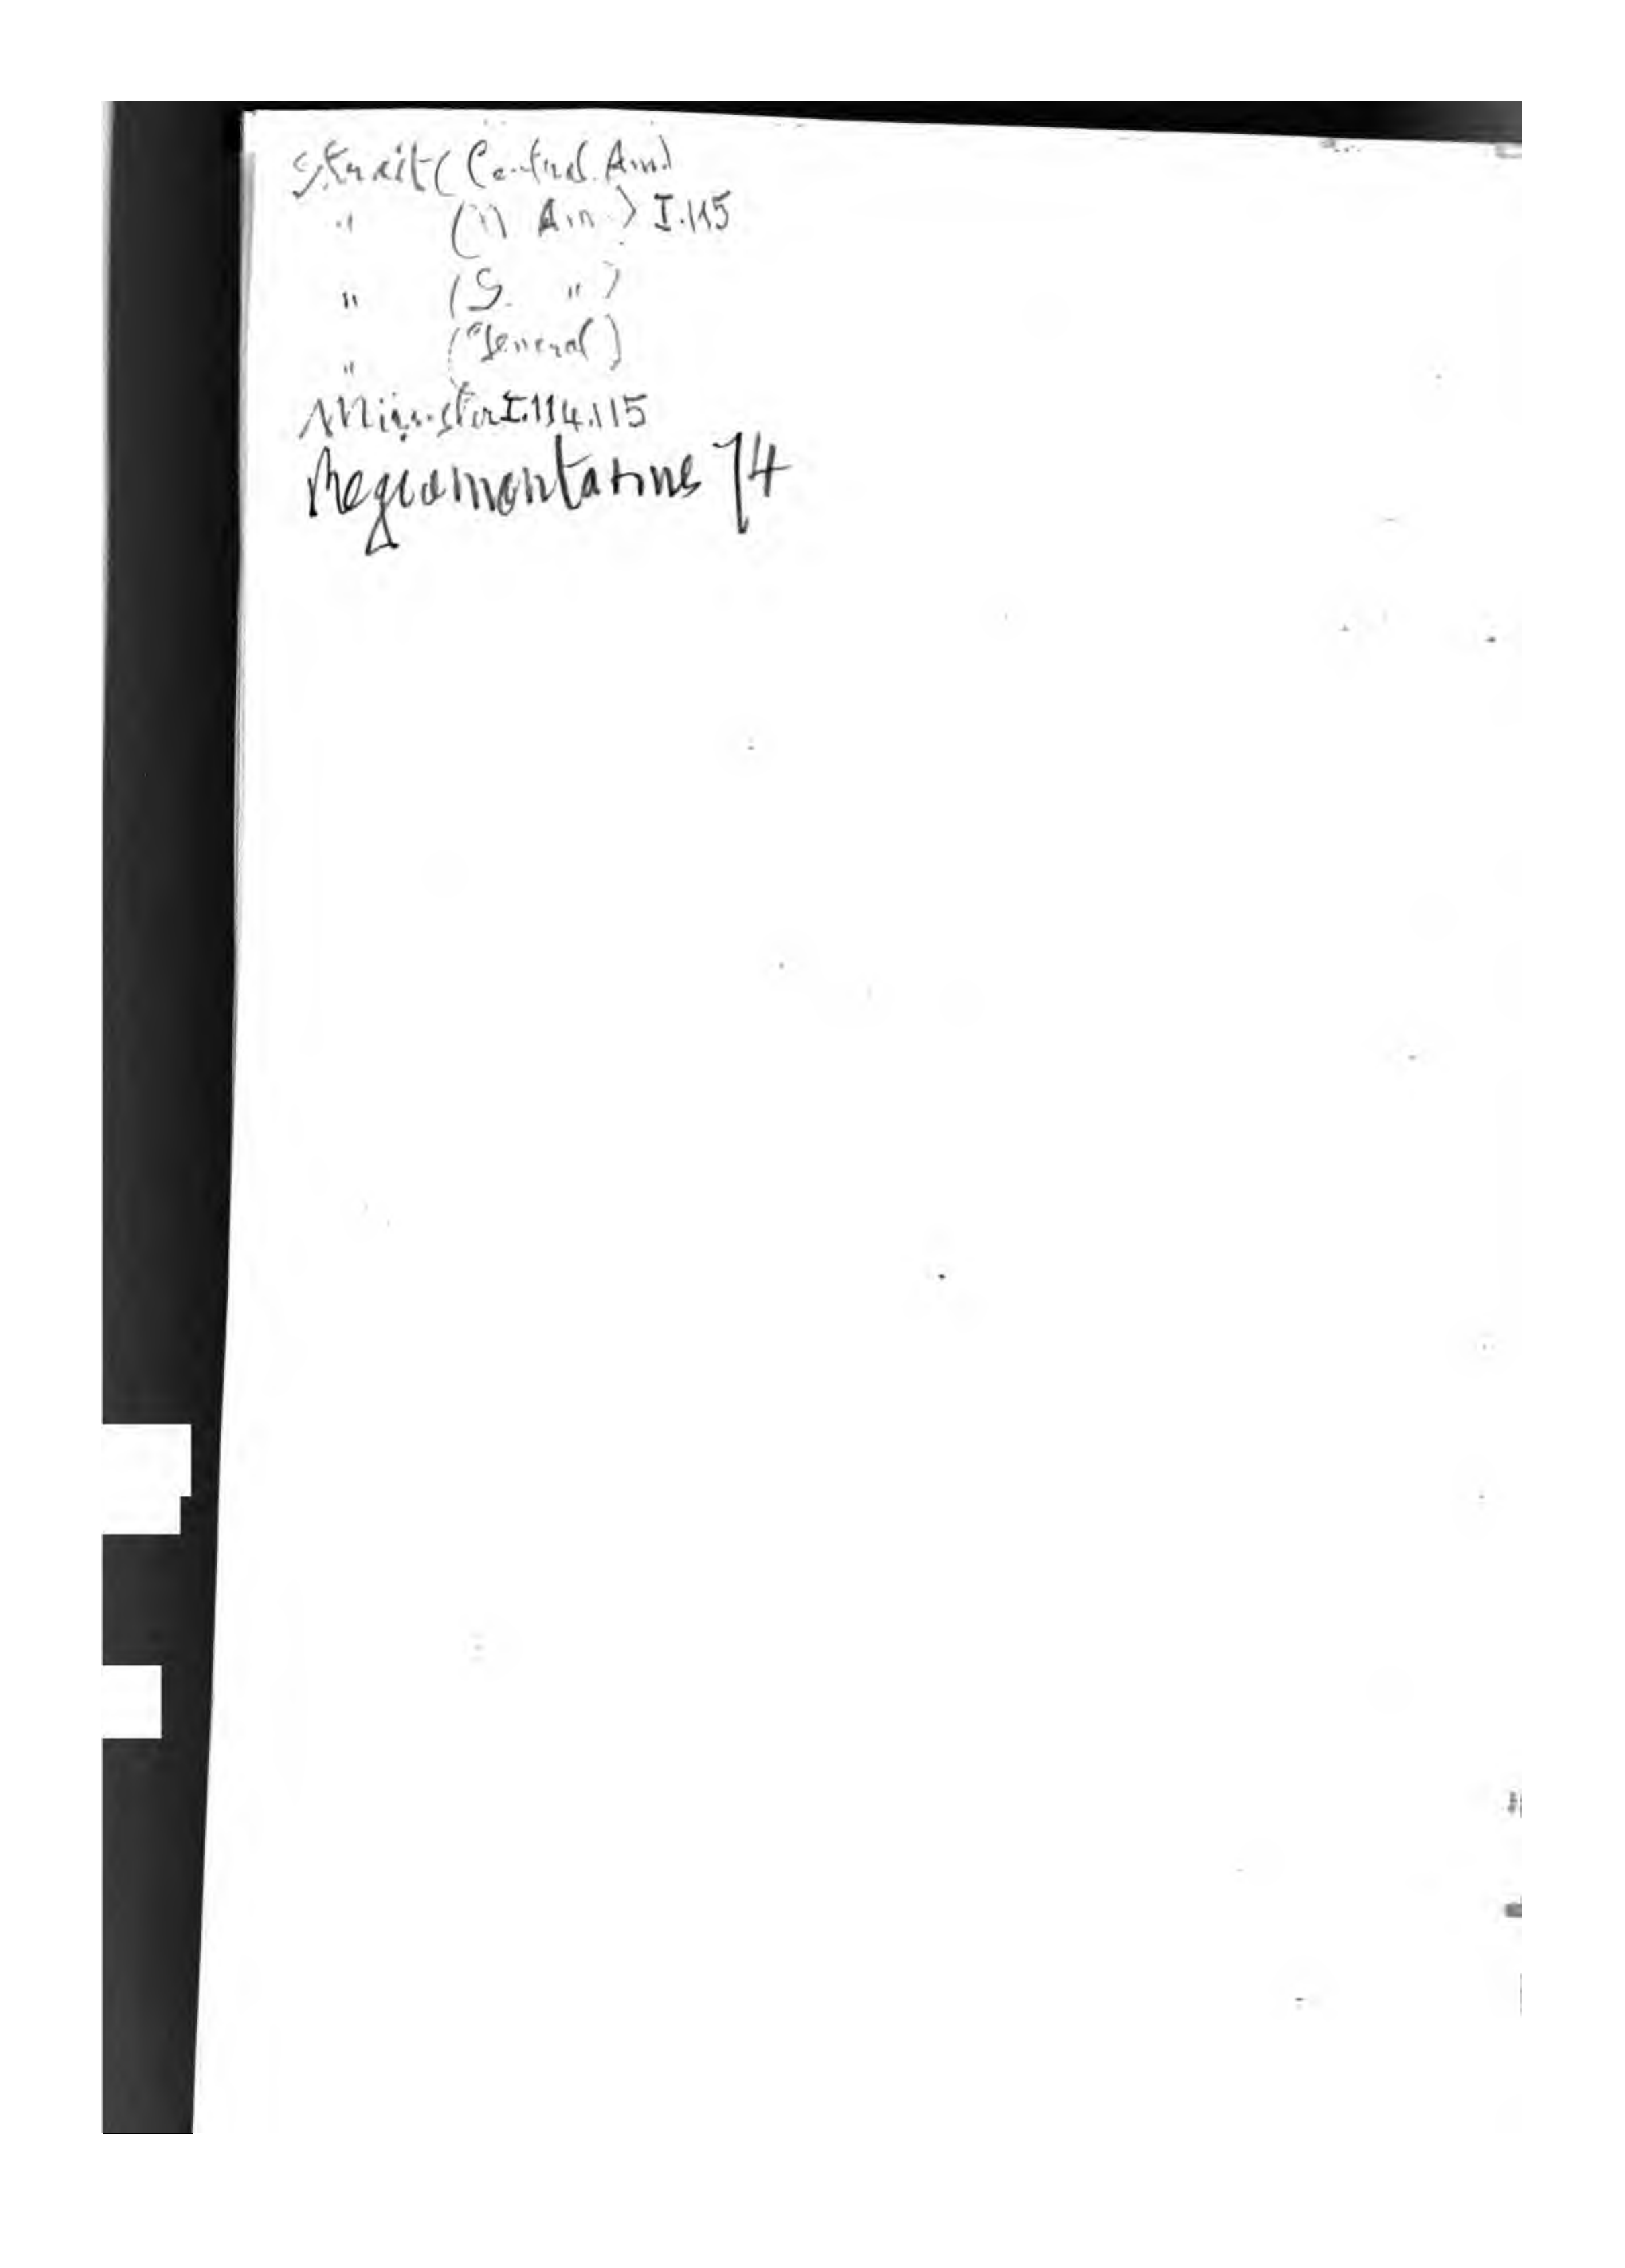 Strait (Central. Am)
" (N Am.) I.115
" (S. ")
" (General)
Münster I.114.115
Regiomontanus 74